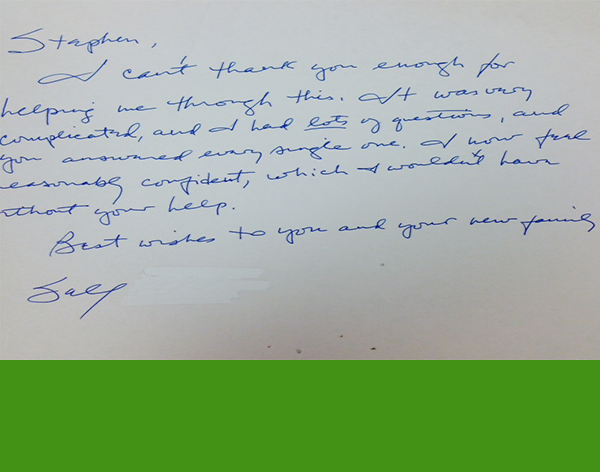 Stephen,
I can't thank you enough for
helping me through this. It was very
complicated, and I had lots of questions, and
you answered every single one. I now feel
easonably confident, which I wouldn't have
ithout your help.
Best wishes to you and your new family